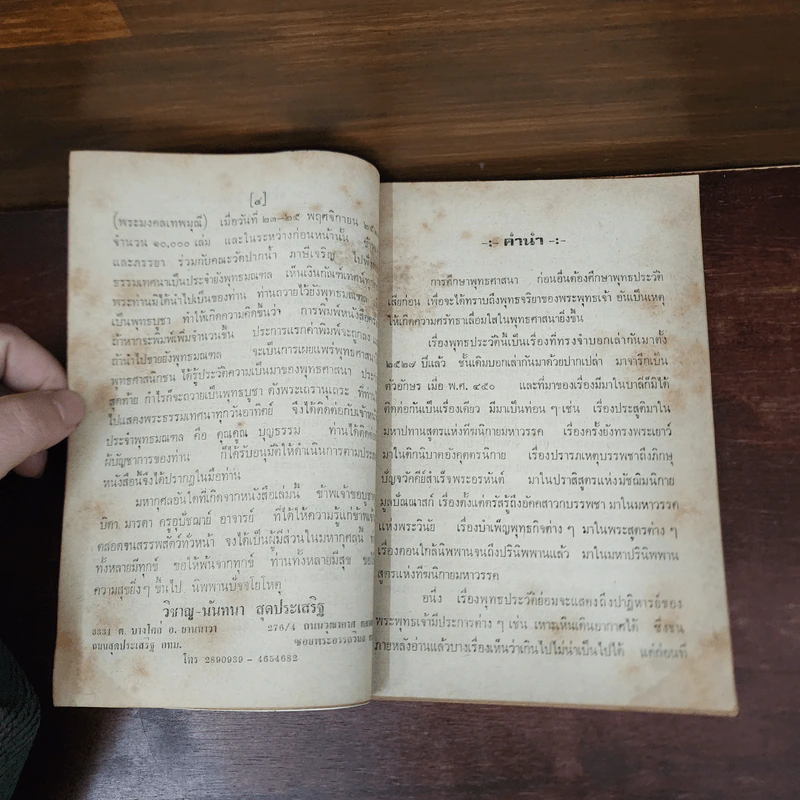 [๔]
(พระมงคลเทพมุณี) เมื่อวันที่ ๒๓-๒๕ พฤศจิกายน
จำนวน ๑๐,๐๐๐ เล่ม และในระหว่างก่อนหน้านั้น
และภรรยา ร่วมกับคณะวัดปากน้ำ ภาษีเจริญ
ธรรมเทศนาเป็นประจำยังพุทธมณฑล เห็นเงินกัณฑ์เทศน์
พระท่านมิได้นำไปเป็นของท่าน ท่านถวายไว้ยังพุทธมณฑล
เป็นพุทธบูชา ทำให้เกิดความคิดขึ้นว่า การพิมพ์หนังสือ
ถ้าหากจะพิมพ์เพิ่มจำนวนขึ้น ประการแรกค่าพิมพ์จะถูกลง
ถ้านำไปขายยังพุทธมณฑล จะเป็นการเผยแพร่พุทธศาสนา
พุทธศาสนิกชน ได้รู้ประวัติความเป็นมาของพุทธศาสนา
สุดท้าย กำไรก็จะถวายเป็นพุทธบูชา ดังพระเถรานุเถระ
ไปแสดงพระธรรมเทศนาทุกวันอาทิตย์ จึงได้ติดต่อกับ
ประจำพุทธมณฑล คือ คุณคูณ บุญธรรม ท่านได้ติดต่อ
ผู้บัญชาการของท่าน ก็ได้รับอนุมัติให้ดำเนินการตาม
หนังสือนี้จึงได้ปรากฏในมือท่าน
มหากุศลอันใดที่เกิดจากหนังสือเล่มนี้ ข้าพเจ้าขอ
บิดา มารดา ครูอุปัชฌาย์ อาจารย์ ที่ได้ให้ความรู้แก่ข้าพเจ้า
ตลอดจนสรรพสัตว์ทั่วหน้า จงได้เป็นผู้มีส่วนในมหากุศลนี้
ทั้งหลายมีทุกข์ ขอให้พ้นจากทุกข์ ท่านทั้งหลายมีสุข
ความสุขยิ่ง ๆ ขึ้นไป นิพพานปัจจโยโหตุ
วิชาญ-นันทนา สุดประเสริฐ
ต. บางโคล่ อ. ยานนาวา 276/4
ถนนสุดประเสริฐ กทม.
โทร 2890939 - 4654682
-:- คำนำ -:-
การศึกษาพุทธศาสนา ก่อนอื่นต้องศึกษาพุทธประวัติ
เสียก่อน เพื่อจะได้ทราบถึงพุทธจริยาของพระพุทธเจ้า อันเป็นเหตุ
ให้เกิดความศรัทธาเลื่อมใสในพุทธศาสนายิ่งขึ้น
เรื่องพุทธประวัตินี้เป็นเรื่องที่ทรงจำบอกเล่ากันมาตั้ง
๒๕๒๗ ปีแล้ว ชั้นเดิมบอกเล่ากันมาด้วยปากเปล่า มาจารึกเป็น
ตัวอักษร เมื่อ พ.ศ. ๔๕๐ และที่มาของเรื่องมีมาในบาลีก็มิได้
ติดต่อกันเป็นเรื่องเดียว มีมาเป็นท่อน ๆ เช่น เรื่องประสูติมาใน
มหาปทานสูตรแห่งทีฆนิกายมหาวรรค เรื่องครั้งยังทรงพระเยาว์
มาในติกนิบาตอังคุตตรนิกาย เรื่องปรารภเหตุบรรพชาถึงภิกษุ
ปัญจวัคคีย์สำเร็จพระอรหันต์ มาในปราสิสูตรแห่งมัชฌิมนิกาย
มูลปัณณาสก์ เรื่องตั้งแต่ตรัสรู้ถึงอัคคสาวกบรรพชา มาในมหาวรรค
แห่งพระวินัย เรื่องบำเพ็ญพุทธกิจต่าง ๆ มาในพระสูตรต่าง ๆ
เรื่องตอนใกล้นิพพานจนถึงปรินิพพานแล้ว มาในมหาปรินิพพาน
สูตรแห่งทีฆนิกายมหาวรรค
อนึ่ง เรื่องพุทธประวัติย่อมจะแสดงถึงปาฏิหารย์ของ
พระพุทธเจ้ามีประการต่าง ๆ เช่น เหาะเหินเดินอากาศได้ ซึ่งชน
ภายหลังอ่านแล้วบางเรื่องเห็นว่าเกินไปไม่น่าเป็นไปได้ แต่ก่อนที่